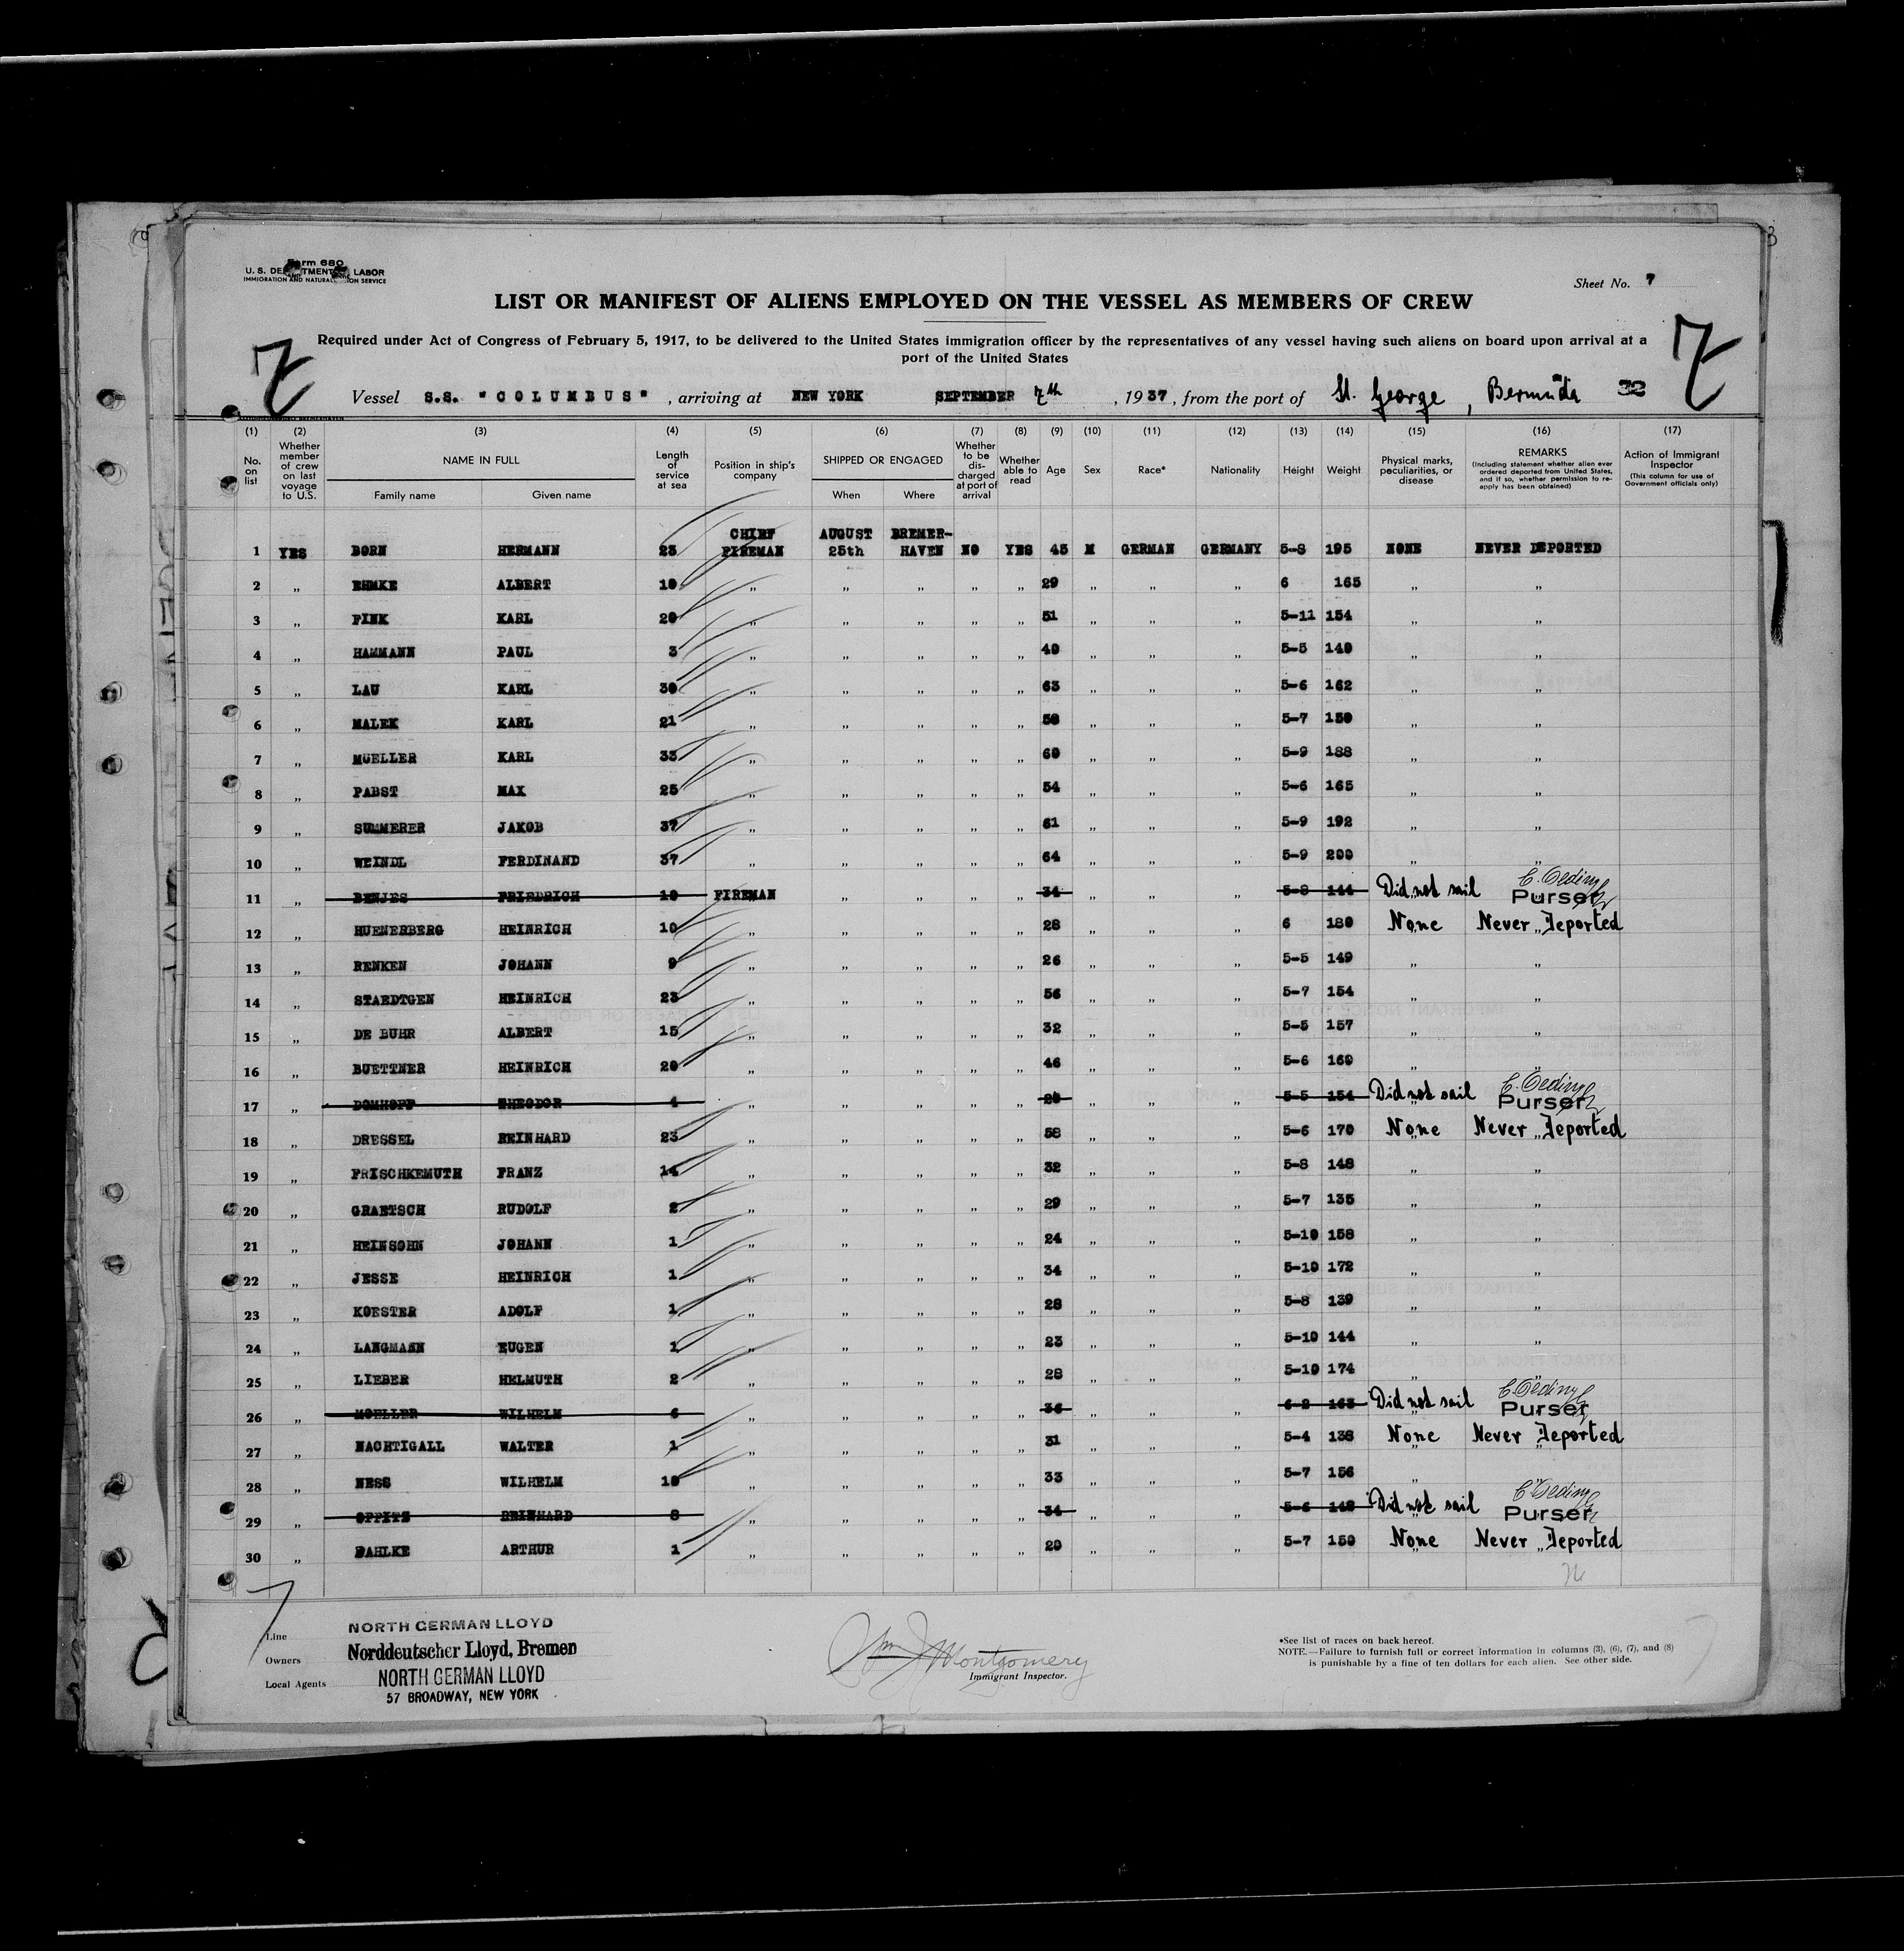 Form 680
U. S. DEPARTMENT LABOR
IMMIGRATION AND NATURALIZATION SERVICE
Sheet No. 7
LIST OR MANIFEST OF ALIENS EMPLOYED ON THE VESSEL AS MEMBERS OF CREW
Required under Act of Congress of February 5, 1917, to be delivered to the United States immigration officer by the representatives of any vessel having such aliens on board upon arrival at a
port of the United States
7 7
Vessel S.S. "COLUMBUS", arriving at NEW YORK SEPTEMBER 7th, 1937, from the port of St. George, Bermuda 32
(1) (2) (3) (4) (5) (6) (7) (8) (9) (10) (11) (12) (13) (14) (15) (16) (17)
No. on list Whether member of crew on last voyage to U.S. NAME IN FULL Family name Given name Length of service at sea Position in ship's company SHIPPED OR ENGAGED When Where Whether to be discharged at port of arrival Whether able to read Age Sex Race* Nationality Height Weight Physical marks, peculiarities, or disease REMARKS (Including statement whether alien ever ordered deported from United States, and if so, whether permission to re-apply has been obtained) Action of Immigrant Inspector (This column for use of Government officials only)
1 YES BORN HERMANN 23 CHIEF FIREMAN AUGUST 25th BREMER-HAVEN NO YES 45 M GERMAN GERMANY 5-8 195 NONE NEVER DEPORTED
2 „ EHMKE ALBERT 10 „ „ „ „ „ 29 „ „ „ 6 165 „ „
3 „ FINK KARL 20 „ „ „ „ „ 51 „ „ „ 5-11 154 „ „
4 „ HAMMANN PAUL 3 „ „ „ „ „ 40 „ „ „ 5-5 140 „ „
5 „ LAU KARL 30 „ „ „ „ „ 63 „ „ „ 5-6 162 „ „
6 „ MALEK KARL 21 „ „ „ „ „ 58 „ „ „ 5-7 150 „ „
7 „ MUELLER KARL 33 „ „ „ „ „ 60 „ „ „ 5-9 188 „ „
8 „ PABST MAX 25 „ „ „ „ „ 54 „ „ „ 5-6 165 „ „
9 „ SUMMERER JAKOB 37 „ „ „ „ „ 61 „ „ „ 5-9 192 „ „
10 „ WEINDL FERDINAND 37 „ „ „ „ „ 64 „ „ „ 5-9 200 „ „
11 „ BENJES FRIEDRICH 10 FIREMAN „ „ „ „ 34 „ „ „ 5-8 144 Did not sail C. Oeding Purser
12 „ HUENERBERG HEINRICH 10 „ „ „ „ „ 28 „ „ „ 6 180 None Never Deported
13 „ RENKEN JOHANN 9 „ „ „ „ „ 26 „ „ „ 5-5 149 „ „
14 „ STAEDTGEN HEINRICH 23 „ „ „ „ „ 56 „ „ „ 5-7 154 „ „
15 „ DE BUHR ALBERT 15 „ „ „ „ „ 32 „ „ „ 5-5 157 „ „
16 „ BUETTNER HEINRICH 20 „ „ „ „ „ 46 „ „ „ 5-6 160 „ „
17 „ DOMHOFF THEODOR 4 „ „ „ „ „ „ „ „ 5-5 154 Did not sail C. Oeding Purser
18 „ DRESSEL REINHARD 23 „ „ „ „ „ 58 „ „ „ 5-6 170 None Never Deported
19 „ FRISCHKEMUTH FRANZ 14 „ „ „ „ „ 32 „ „ „ 5-8 148 „ „
20 „ GRAETSCH RUDOLF 2 „ „ „ „ „ 29 „ „ „ 5-7 135 „ „
21 „ HEINSOHN JOHANN 1 „ „ „ „ „ 24 „ „ „ 5-10 158 „ „
22 „ JESSE HEINRICH 1 „ „ „ „ „ 34 „ „ „ 5-10 172 „ „
23 „ KOESTER ADOLF 1 „ „ „ „ „ 28 „ „ „ 5-8 139 „ „
24 „ LANGMANN EUGEN 1 „ „ „ „ „ 23 „ „ „ 5-10 144 „ „
25 „ LIEBER HELMUTH 2 „ „ „ „ „ 28 „ „ „ 5-10 174 „ „
26 „ MOELLER WILHELM 6 „ „ „ „ „ 36 „ „ „ 163 Did not sail C. Oeding Purser
27 „ NACHTIGALL WALTER 1 „ „ „ „ „ 31 „ „ „ 5-4 138 None Never Deported
28 „ NESS WILHELM 10 „ „ „ „ „ 33 „ „ „ 5-7 156 „ „
29 „ OPPITZ REINHARD 8 „ „ „ „ „ 34 „ „ „ 5-6 148 Did not sail C. Oeding Purser
30 „ DAHLKE ARTHUR 1 „ „ „ „ „ 20 „ „ „ 5-7 150 None Never Deported
Line NORTH GERMAN LLOYD
Owners Norddeutscher Lloyd, Bremen
Local Agents NORTH GERMAN LLOYD
57 BROADWAY, NEW YORK
Wm J Montgomery
Immigrant Inspector.
*See list of races on back hereof.
NOTE.—Failure to furnish full or correct information in columns (3), (6), (7), and (8)
is punishable by a fine of ten dollars for each alien. See other side.